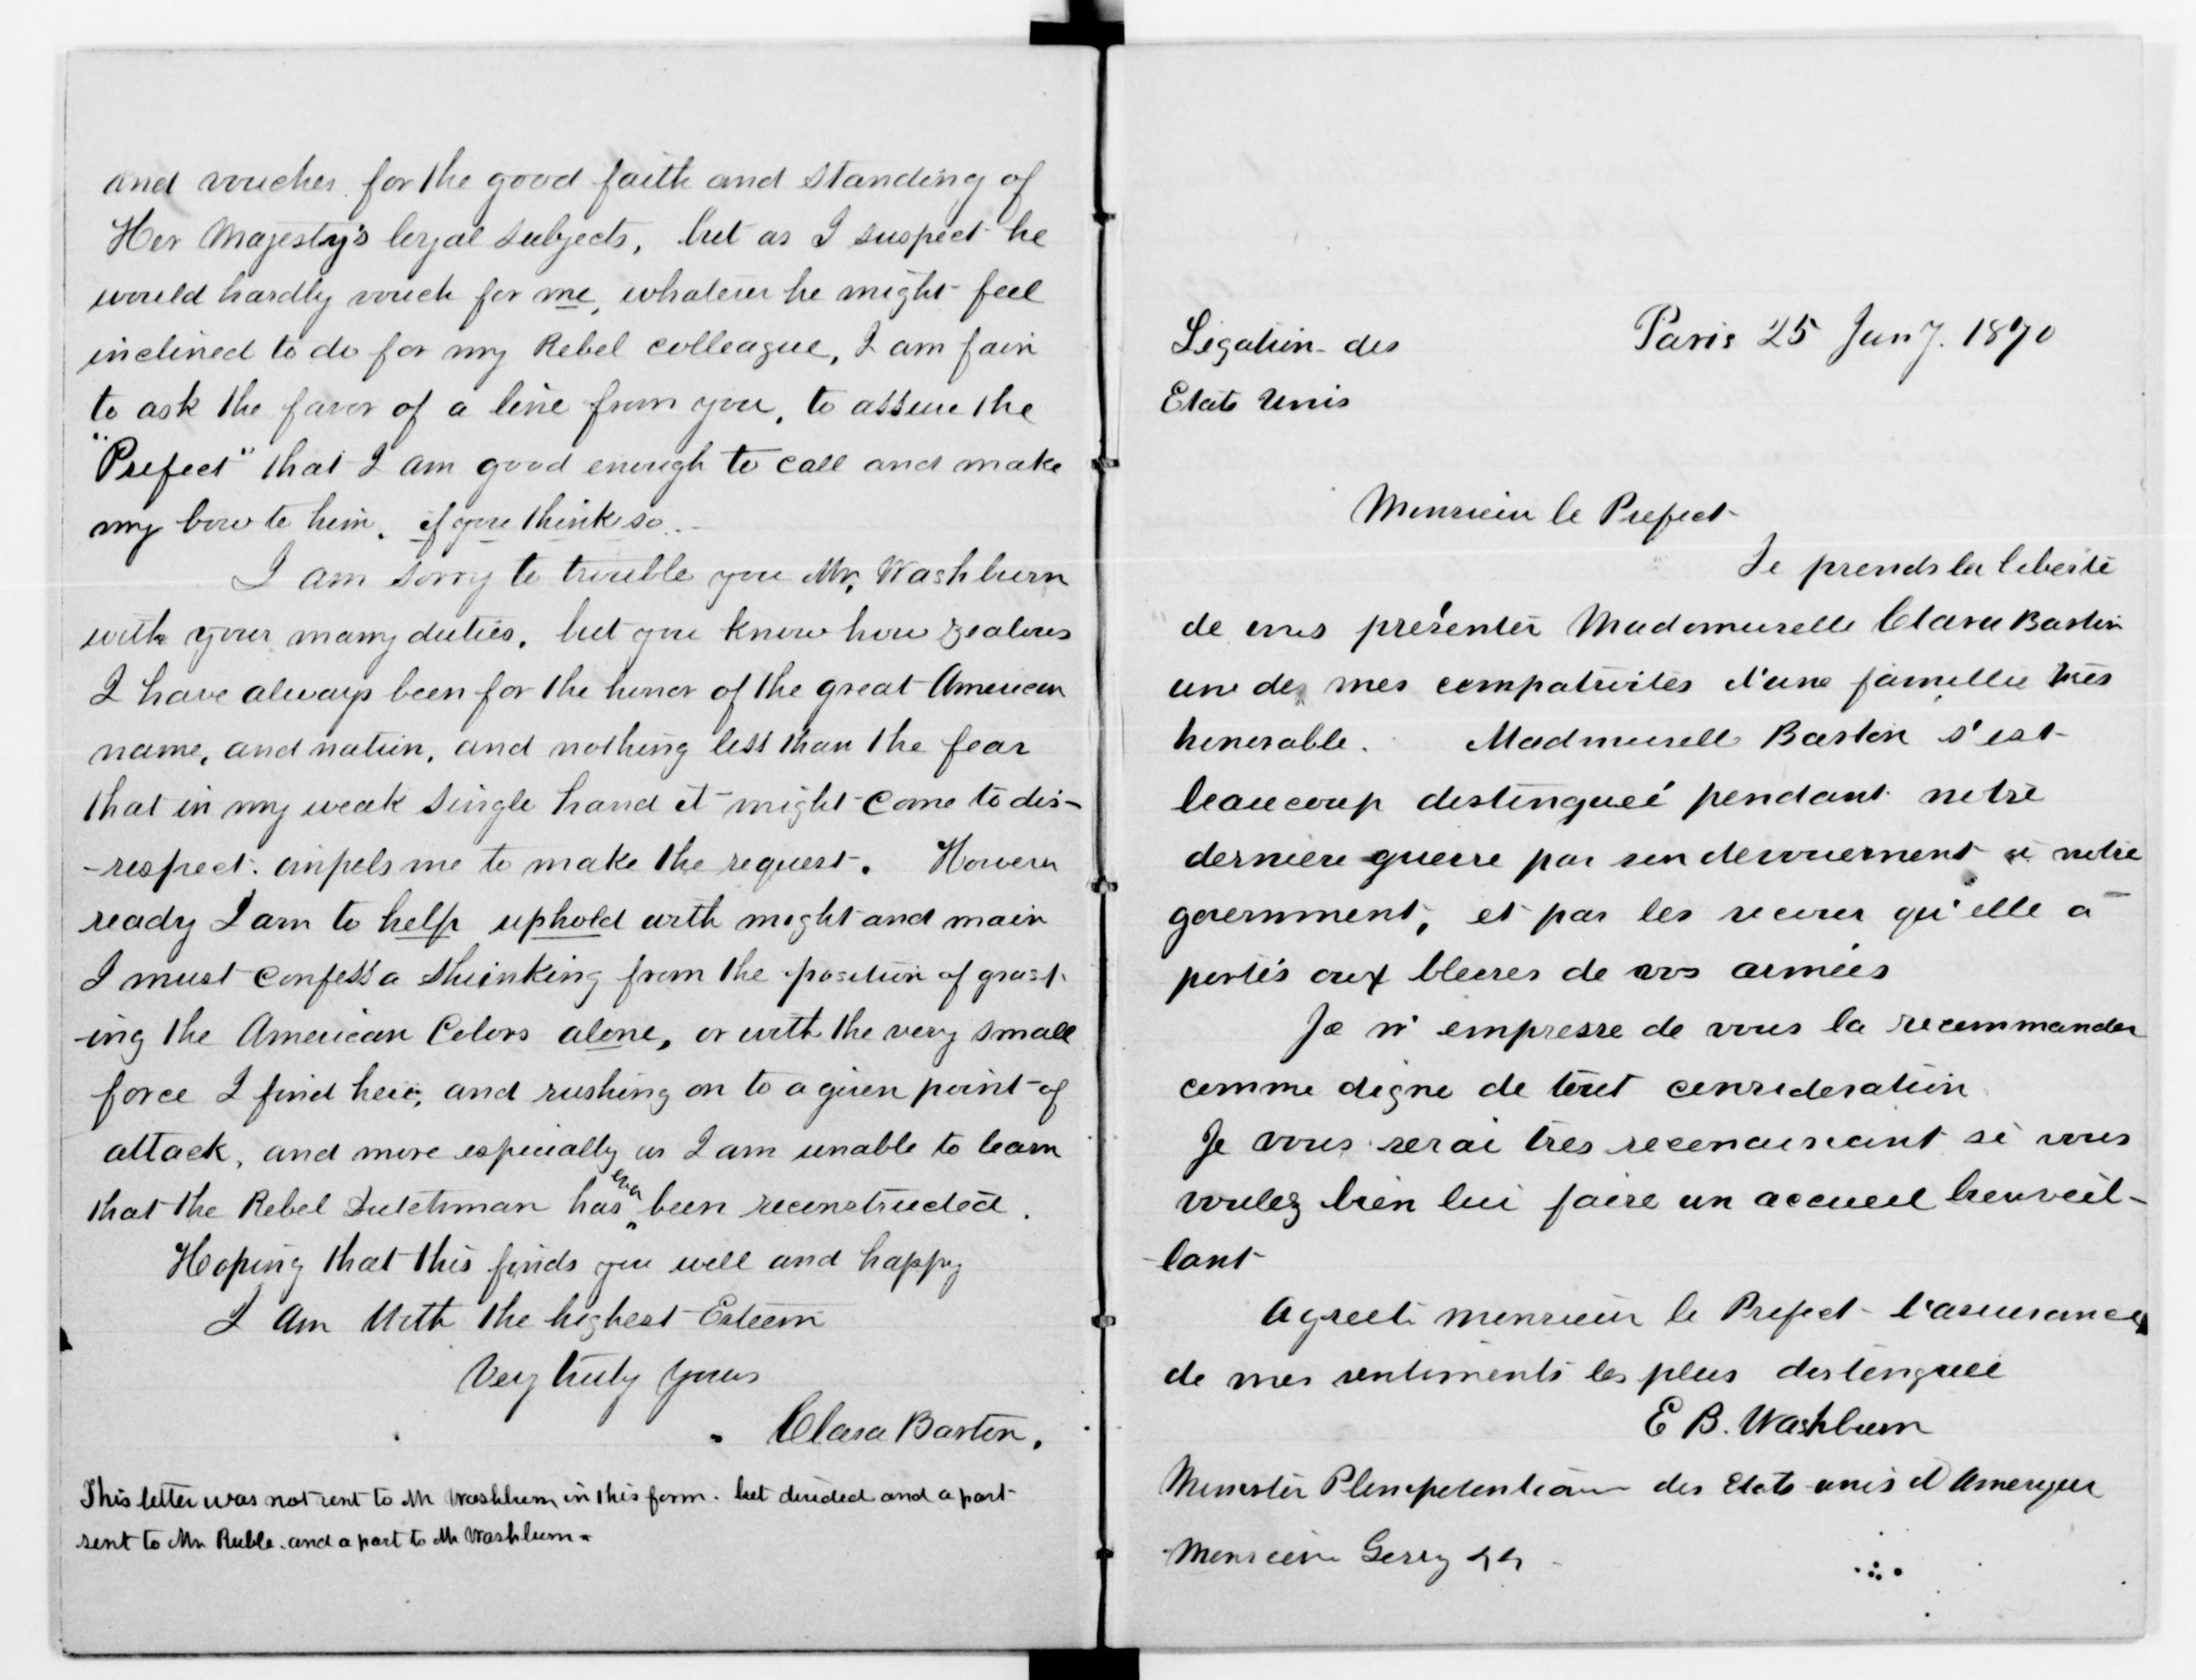 and vouches for the good faith and standing of
Her Majesty's loyal subjects, but as I suspect he
would hardly vouch for me, whatever he might feel
inclined to do for my Rebel colleague, I am fain
to ask the favor of a line from you, to assure the
"Prefect" that I am good enough to call and make
my bow to him. if you think so.
I am sorry to trouble you Mr. Washburn
with your many duties, but you know how zealous
I have always been for the honor of the great American
name, and nation, and nothing less than the fear
that in my weak single hand it might come to dis-
-respect. impels me to make the request. However
ready I am to help uphold with might and main
I must confess a shrinking from the position of grasp-
-ing the American Colors alone, or with the very small
force I find here, and rushing on to a given point of
attack, and more especially as I am unable to learn
that the Rebel Dutchman has ever been reconstructed.
Hoping that this finds you well and happy
I am With the highest Esteem
Very truly yours
Clara Barton.
This letter was not sent to Mr Washburn in this form. but divided and a part
sent to Mr Ruble. and a part to Mr Washburn=
Legation des
Paris 25 Jany. 1870
Etats Unis
Monsieur le Prefect
Je prends la liberté
de vous présenter Mademoiselle Clara Barton
une des mes compatriotes d'une famille très
honorable. Madmoiselle Barton s'est
beaucoup distingueé pendant notre
derniere guerre par son devouement a notre
government, et par les secours qu'elle a
portés aux blesses de nos armées
Je m'empresse de vous la recommander
comme digne de tout consideration
Je vous serai tres reconaissant si vous
voulez bien lui faire un accueil bienveil-
-lant
Agreéz monsieur le Prefect l'assurance
de mes sentiments les plus distingueé
E B. Washburn
Minister Plenipotentiaire des Etats unis d'Amerique
Monsieur Gerry